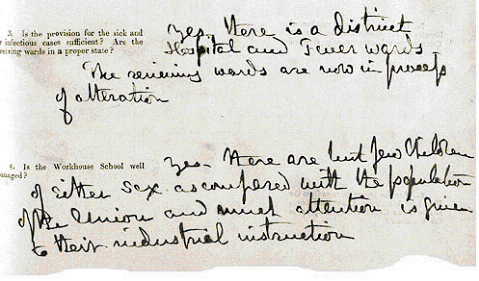 3. Is the provision for the sick and
r infectious cases sufficient? Are the
eiving wards in a proper state?
Yes, there is a district
Hospital and Fever wards
The receiving wards are now in process
of alteration
4. Is the Workhouse School well
anaged?
Yes. there are but few Children
of either sex as compared with the population
of the Union and much attention is given
to their industrial instruction